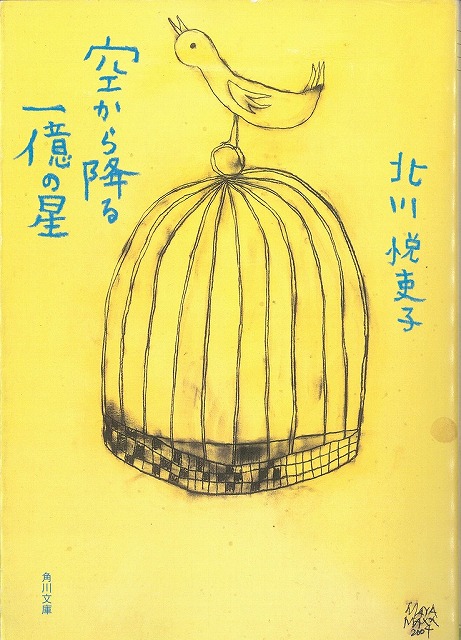 空から降る
一億の星
北川悦吏子
角川文庫
MAYA
MAXX
2004